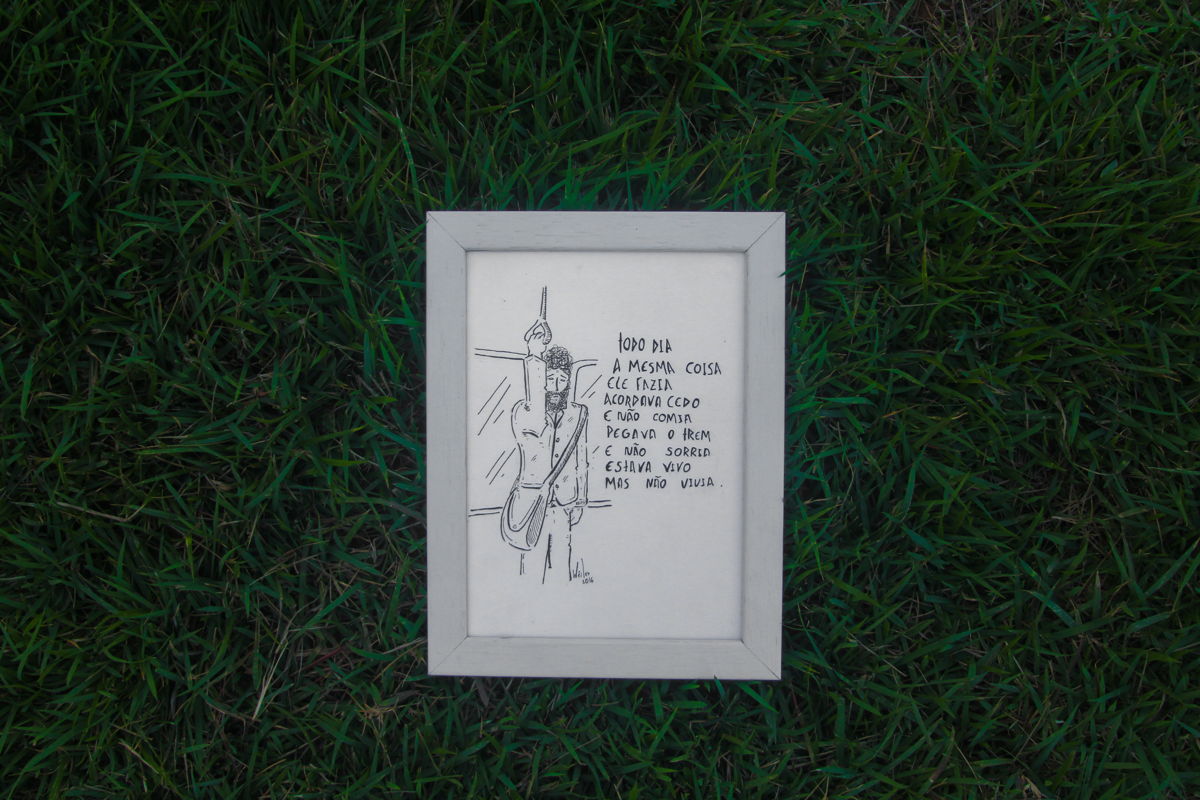 TODO DIA
A MESMA COISA
ELE FAZIA
ACORDAVA CEDO
E NÃO COMIA
PEGAVA O TREM
E NÃO SORRIA
ESTAVA VIVO
MAS NÃO VIVIA.
2016